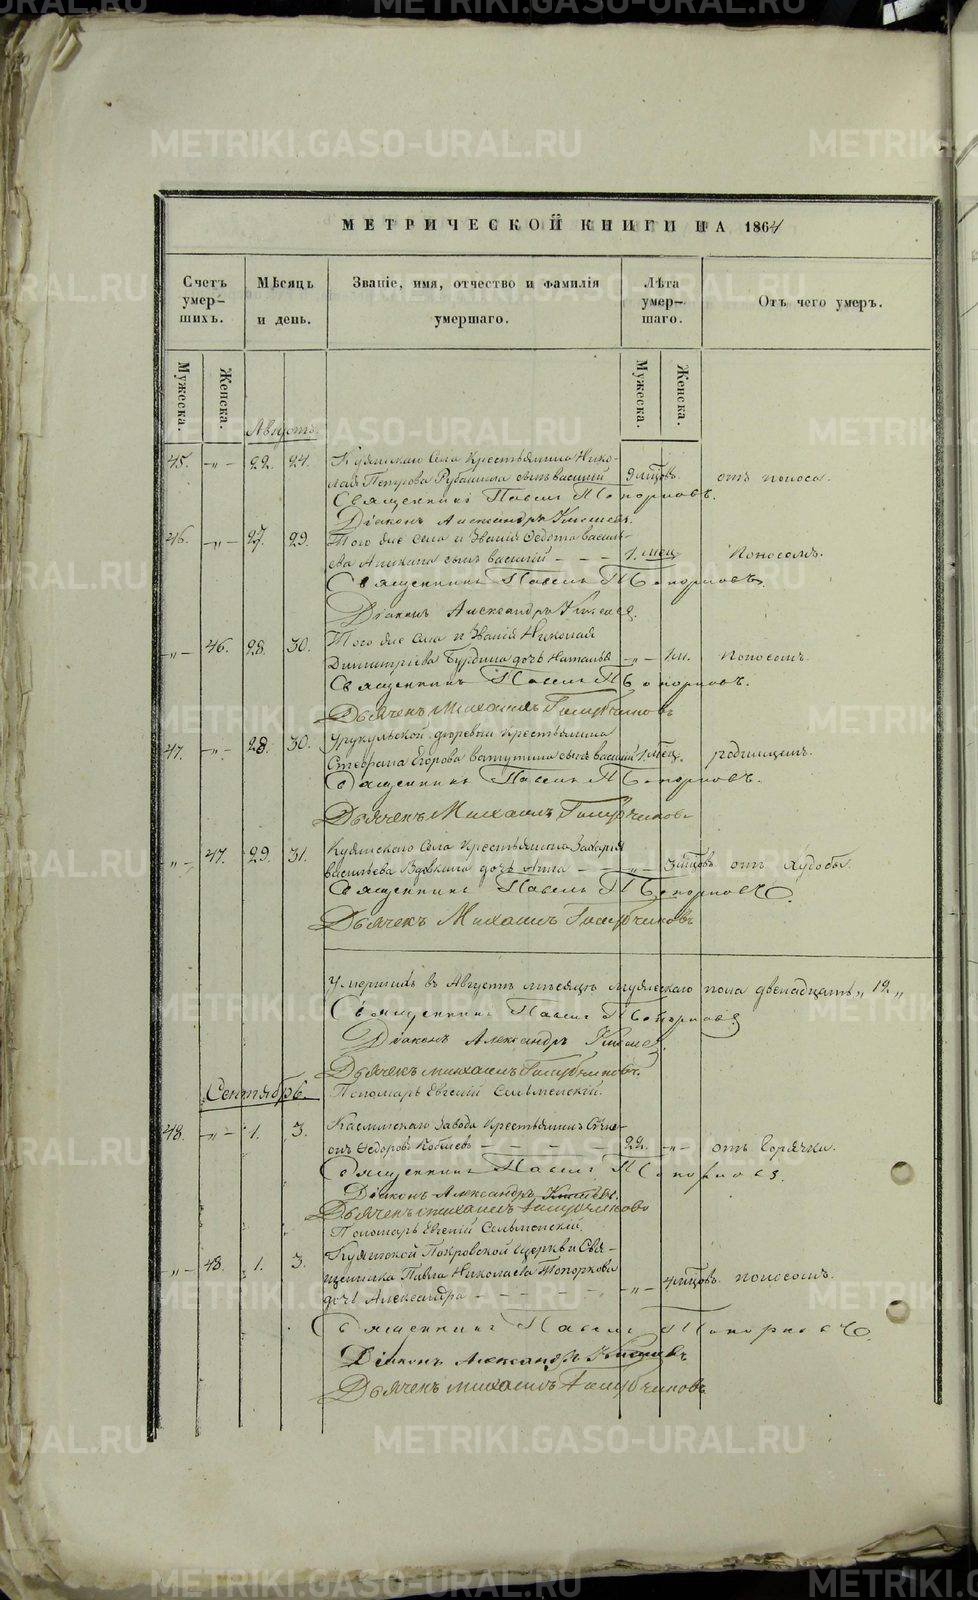 METRIKI.GASO-URAL.RU
МЕТРИЧЕСКОЙ КНИГИ НА 1864
Счетъ умер-шихъ.
Мѣсяцъ и день.
Званіе, имя, отчество и фамилія умершаго.
Лѣта умер-шаго.
Отъ чего умеръ.
Мужеска.
Женска.
Мужеска.
Женска.
Августъ.
45. „ 22. 24. Куяшскаго Села Крестьянина Нико-
лая Петрова сынъ Василій 9 мцовъ. отъ поноса.
Священникъ Павелъ Топорковъ.
Діаконъ Александръ
46. „ 27. 29. Того же Села и Званія Федота Василь-
ева сынъ Василій 1. мец. Поносомъ.
Священникъ Павелъ Топорковъ.
Діаконъ Александръ
„ 46. 28. 30. Того же Села и Званія Николая
Димитріева Бурдина дочь Наталья „ 1 м. Поносомъ.
Священникъ Павелъ Топорковъ.
Дьячекъ Михаилъ Голубчиковъ
47. „ 28. 30. Урукульской деревни Крестьянина
Стефана Егорова Ватутина сынъ Василій 1. мец. родимцемъ.
Священникъ Павелъ Топорковъ.
Дьячекъ Михаилъ Голубчиковъ
„ 47. 29. 31. Куяшскаго Села Крестьянина Захарія
Васильева Вдовкина дочь Анна „ 3 мцовъ отъ Худобы.
Священникъ Павелъ Топорковъ.
Дьячекъ Михаилъ Голубчиковъ
Умершихъ въ Августѣ мѣсяцѣ мужескаго пола двенадцать „ 12 „
Священникъ Павелъ Топорковъ
Діаконъ Александръ
Дьячекъ Михаилъ Голубчиковъ.
Сентябрь.
Пономарь Евгеній Сельменскій.
48. „ 1. 3. Каслинскаго Завода Крестьянинъ Симе-
онъ Федоровъ 22. „ отъ Горячки.
Священникъ Павелъ Топорковъ.
Діаконъ Александръ
Дьячекъ Михаилъ Голубчиковъ
Пономарь Евгеній Сельменскій.
„ 48. 1. 3. Куяшской Покровской Церкви Свя-
щенника Павла Николаева Топоркова
дочь Александра „ 4 мцовъ. поносомъ.
Священникъ Павелъ Топорковъ.
Діаконъ Александръ
Дьячекъ Михаилъ Голубчиковъ